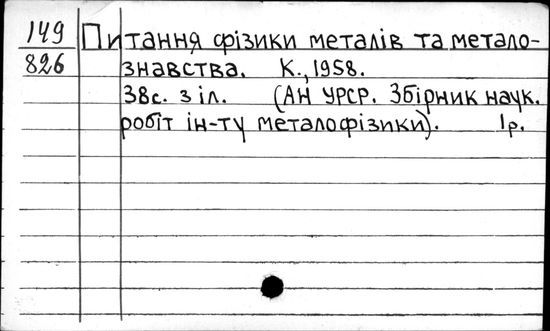 149 Питання фізики металів та метало-
826 знавства. К., 1958.
38с. з іл. (АН УРСР. Збірник наук.
робіт ін-ту металофізики). 1р.